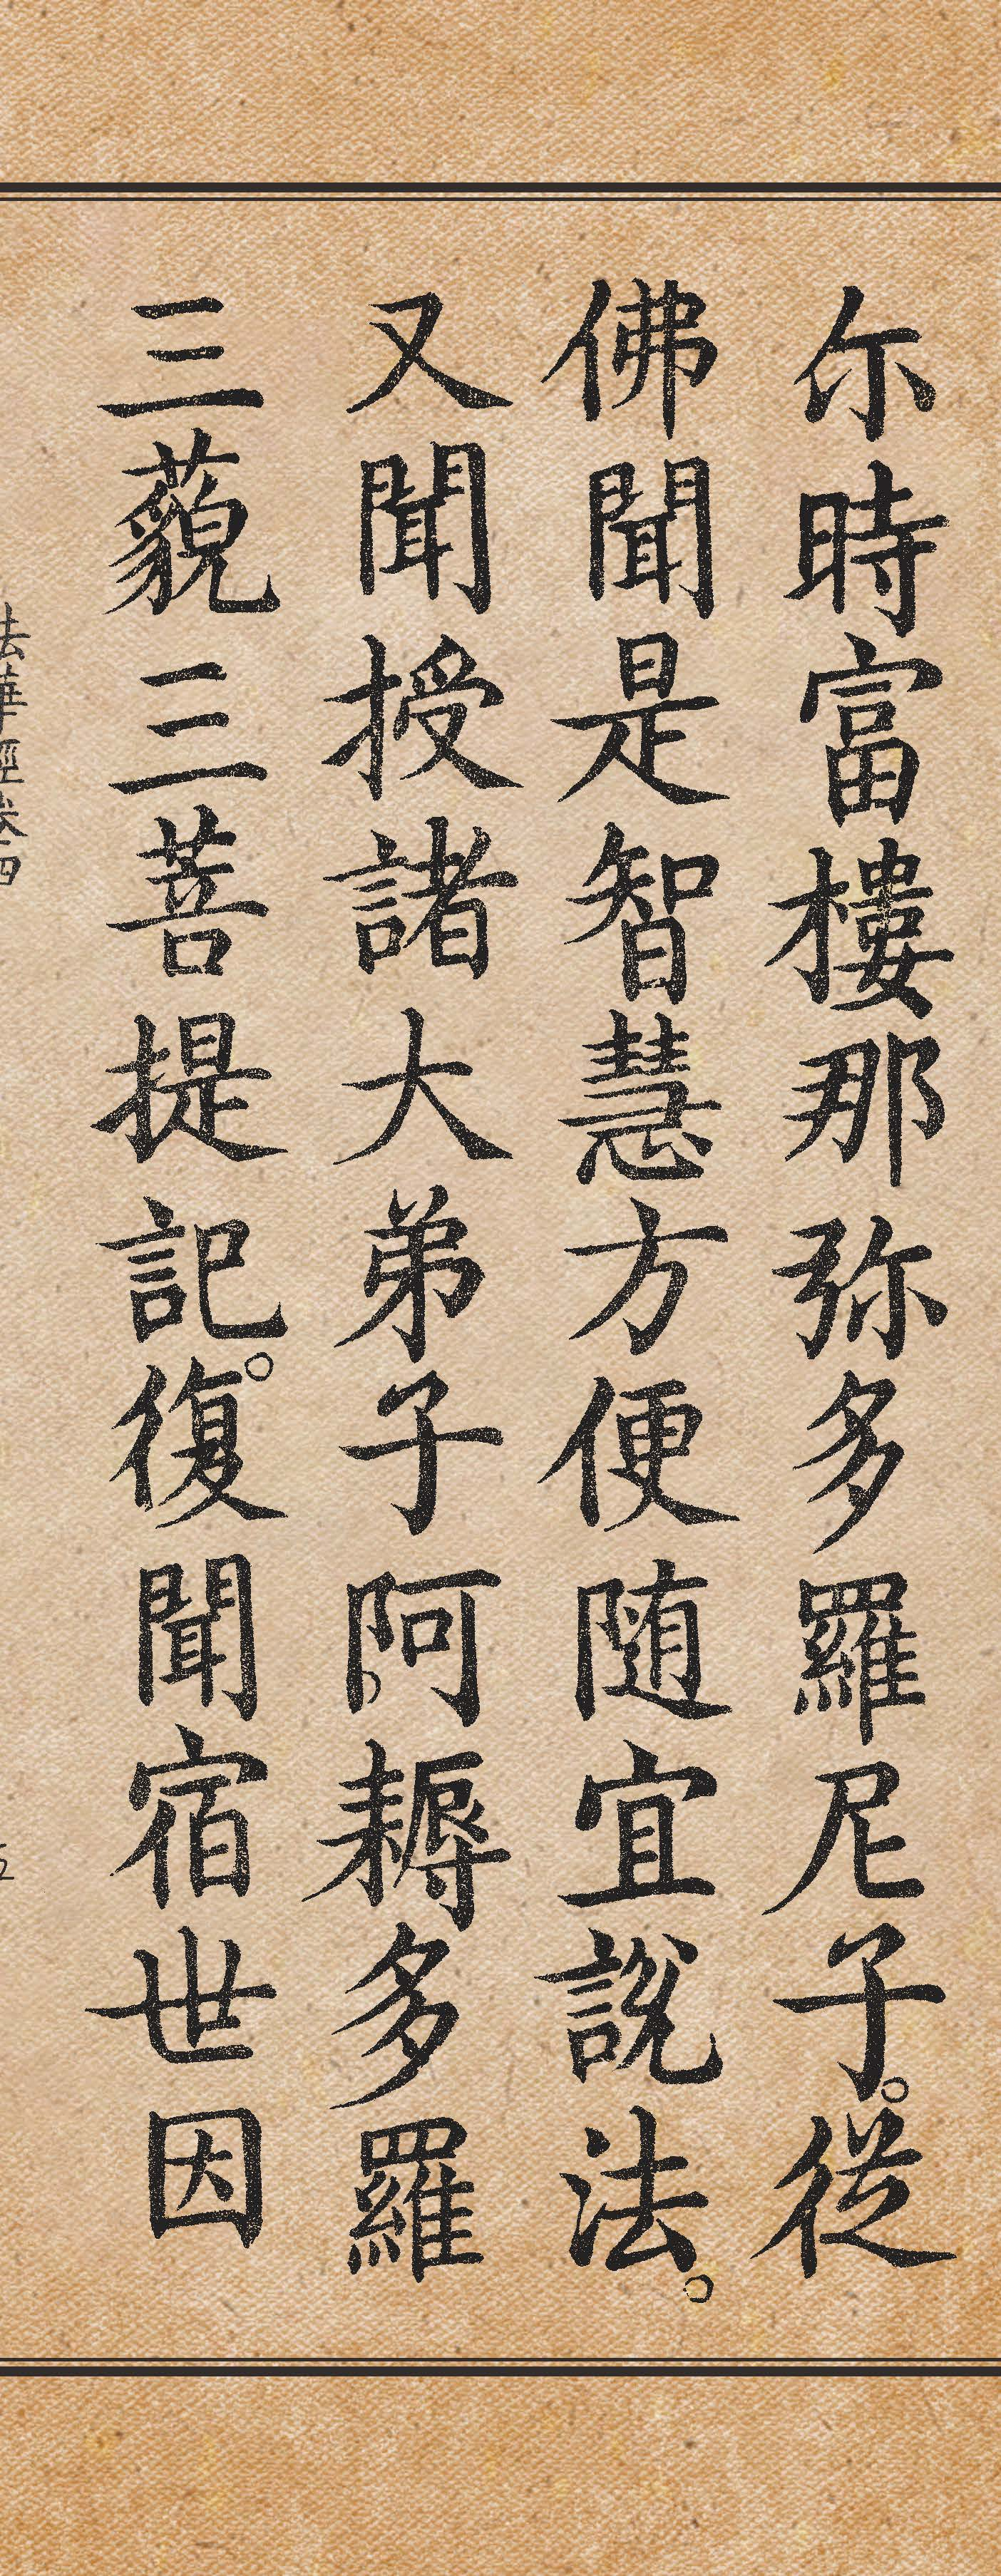 尔時富樓那弥多羅尼子。従
佛聞是智慧方便随宜説法。
又聞授諸大弟子阿耨多羅
三藐三菩提記。復聞宿世因
法華經卷四